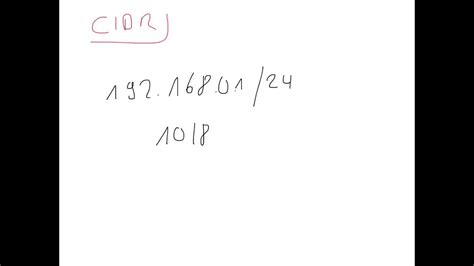 CIDR
192.168.01/24
10/8